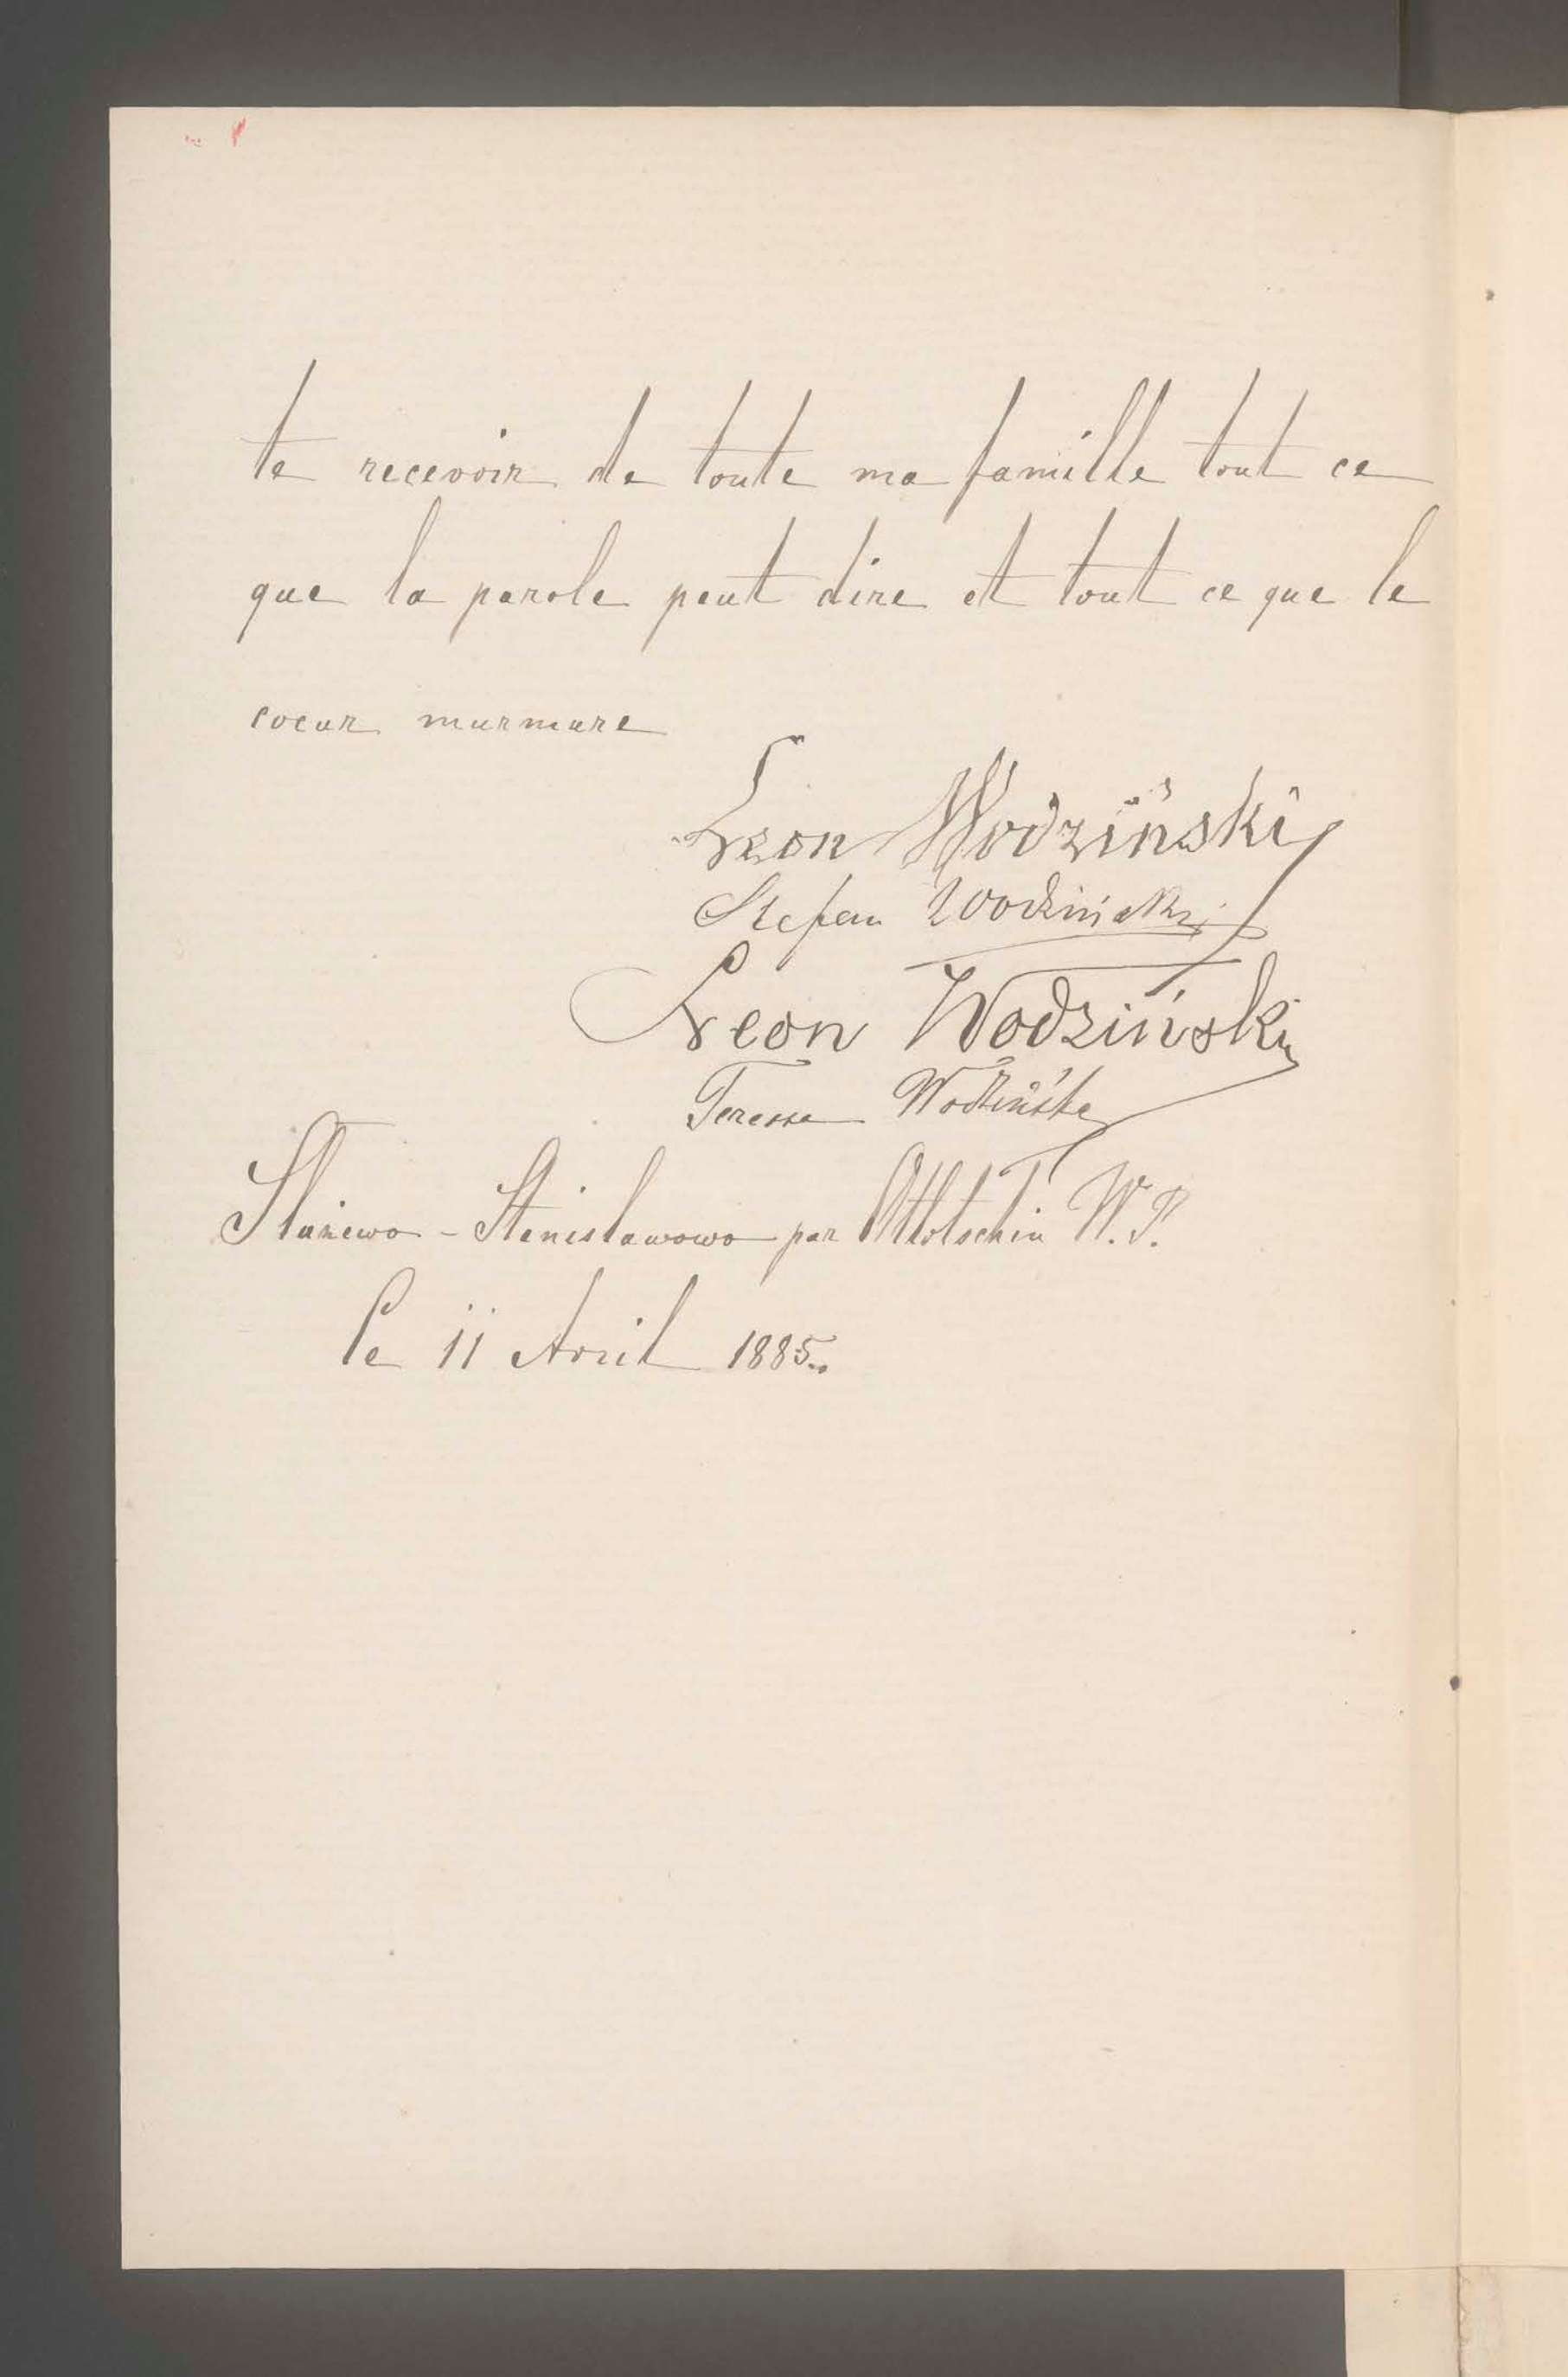 te recevoir de toute ma famille tout ce
que la parole peut dire et tout ce que le
coeur murmure
Leon Wodziński
Stefan Wodziński
Leon Wodziński
Teressa Wodzińska
Służewo - Stanisławowo par Ottlotschin W. P.
le 11 Avril 1885.